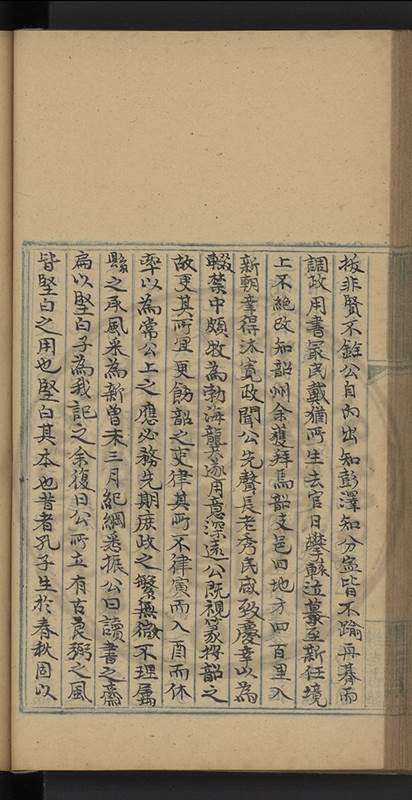 拔非賢不銓公自內出知彭澤知分寧皆不踰再朞而
調政用書最民戴猶所生去官日攀轅泣慕至新任境
上不絕改知韶州余獲拜焉韶支邑四地方四百里入
新朝幸得沐寬政聞公先聲長老秀民咸致慶幸以為
輟禁中頗牧為勃海龔遂用意深遠公既視篆按韶之
故吏其所宜更飭韶之吏律其所不律寅而入酉而休
率以為常公上之應必務先期庶政之繁無微不理屬
縣之承風采為新曾未三月紀綱悉振公曰讀書之齋
扁以堅白子為我記之余復曰公所立有古良弼之風
皆堅白之用也堅白其本也昔者孔子生於春秋固以